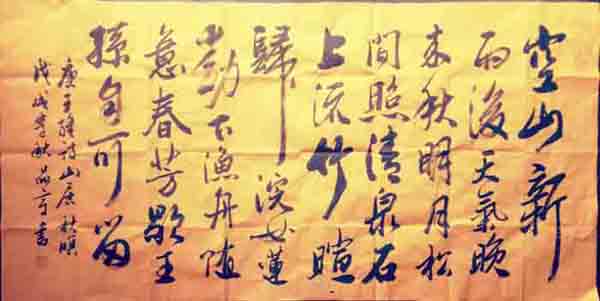 空山新
雨後天氣晚
来秋明月松
間照清泉石
上流竹喧
歸浣女蓮
動下漁舟随
意春芳歇王
孫自可留
唐王維诗山居秋暝
戊戌季秋書